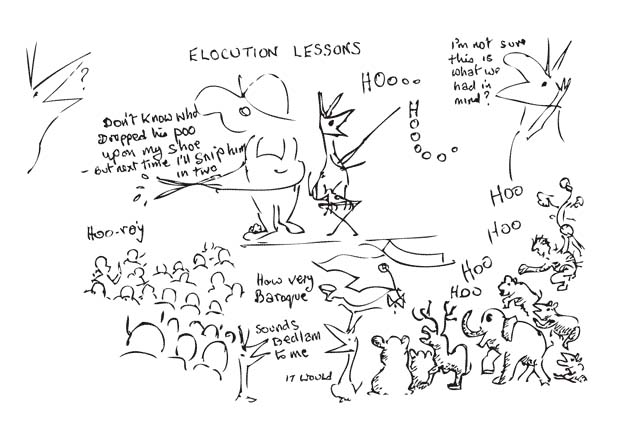 ELOCUTION LESSONS
?
I'm not sure
this is
what we
had in
mind?
HOooo
H
O
O
O
o
o
o
o
Don't know who
Dropped his poo
upon my shoe
- But next time I'll snip him
in two
Hoo-ray
HOO
HOO
HOO
HOO
How very
Baroque
Sounds
Bedlam
to me
IT WOULD